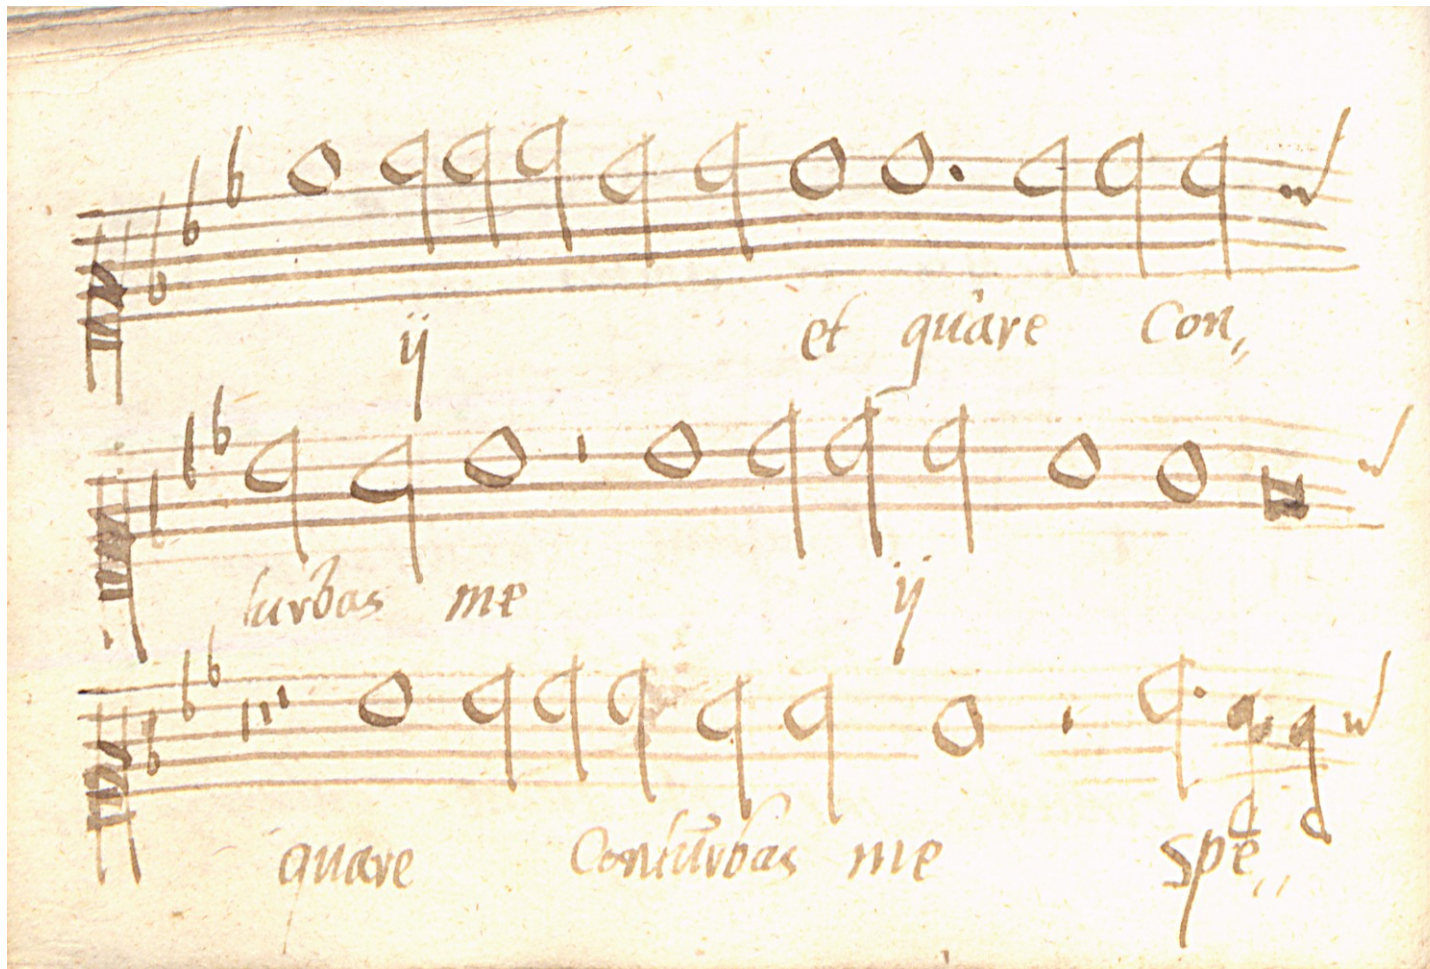 ij et quare Con,,
turbas me ij
quare Conturbas me Spe,,